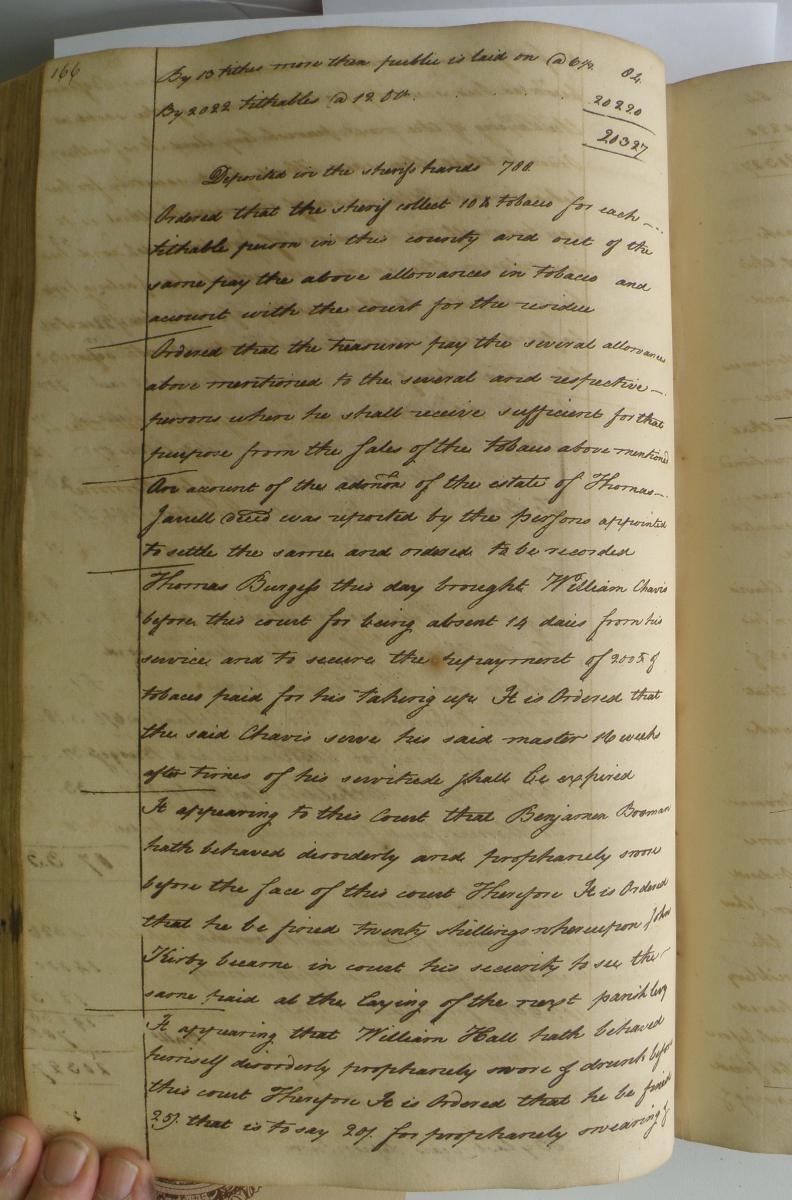 166
By 13 tithes more then public is laid on @ 6 ℔ 84
By 2022 tithables @ 10 ℔ 20220
20327
Deposited in the sherifs hands 700
Ordered that the sherif collect 10 ℔ tobacco for each
tithable person in this county and out of the
same pay the above allowances in tobacco and
account with the court for the residue
Ordered that the treasurer pay the several allowances
above mentioned to the several and respective
persons when he shall receive sufficient for that
purpose from the sales of the tobacco above mentioned
An account of the admōn of the estate of Thomas
Jarrell decd was reported by the persons appointed
to settle the same and ordered to be recorded
Thomas Burgess this day brought William Chavis
before this court for being absent 14 daies from his
service and to secure the repayment of 200 ℔ of
tobacco paid for his taking up It is Ordered that
the said Chavis serve his said master 16 weeks
after times of his servitude shall be expired
It appearing to this Court that Benjamen Boeman
hath behaved disorderly and prophanely swore
before the face of this court Therefore It is Ordered
that he be fined twenty shillings whereupon John
Kirby became in court his security to see the
same paid at the laying of the next parish levy
It appearing that William Hall hath behaved
himself disorderly prophanely swore & drunk before
this court Therefore It is Ordered that he be fined
25/. that is to say 20/. for prophanely swearing &